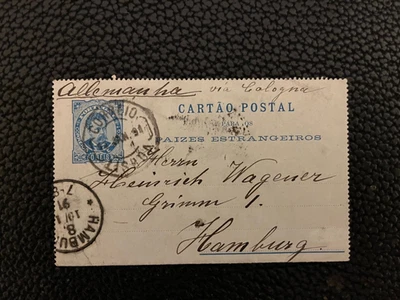 Allemanha via Cologna
CARTÃO POSTAL
PARA OS
PAIZES ESTRANGEIROS
CORREIO
91
Herrn
Heinrich Wagener
Grimm 1.
Hamburg.
HAMBU
8
10/1
91
7-8